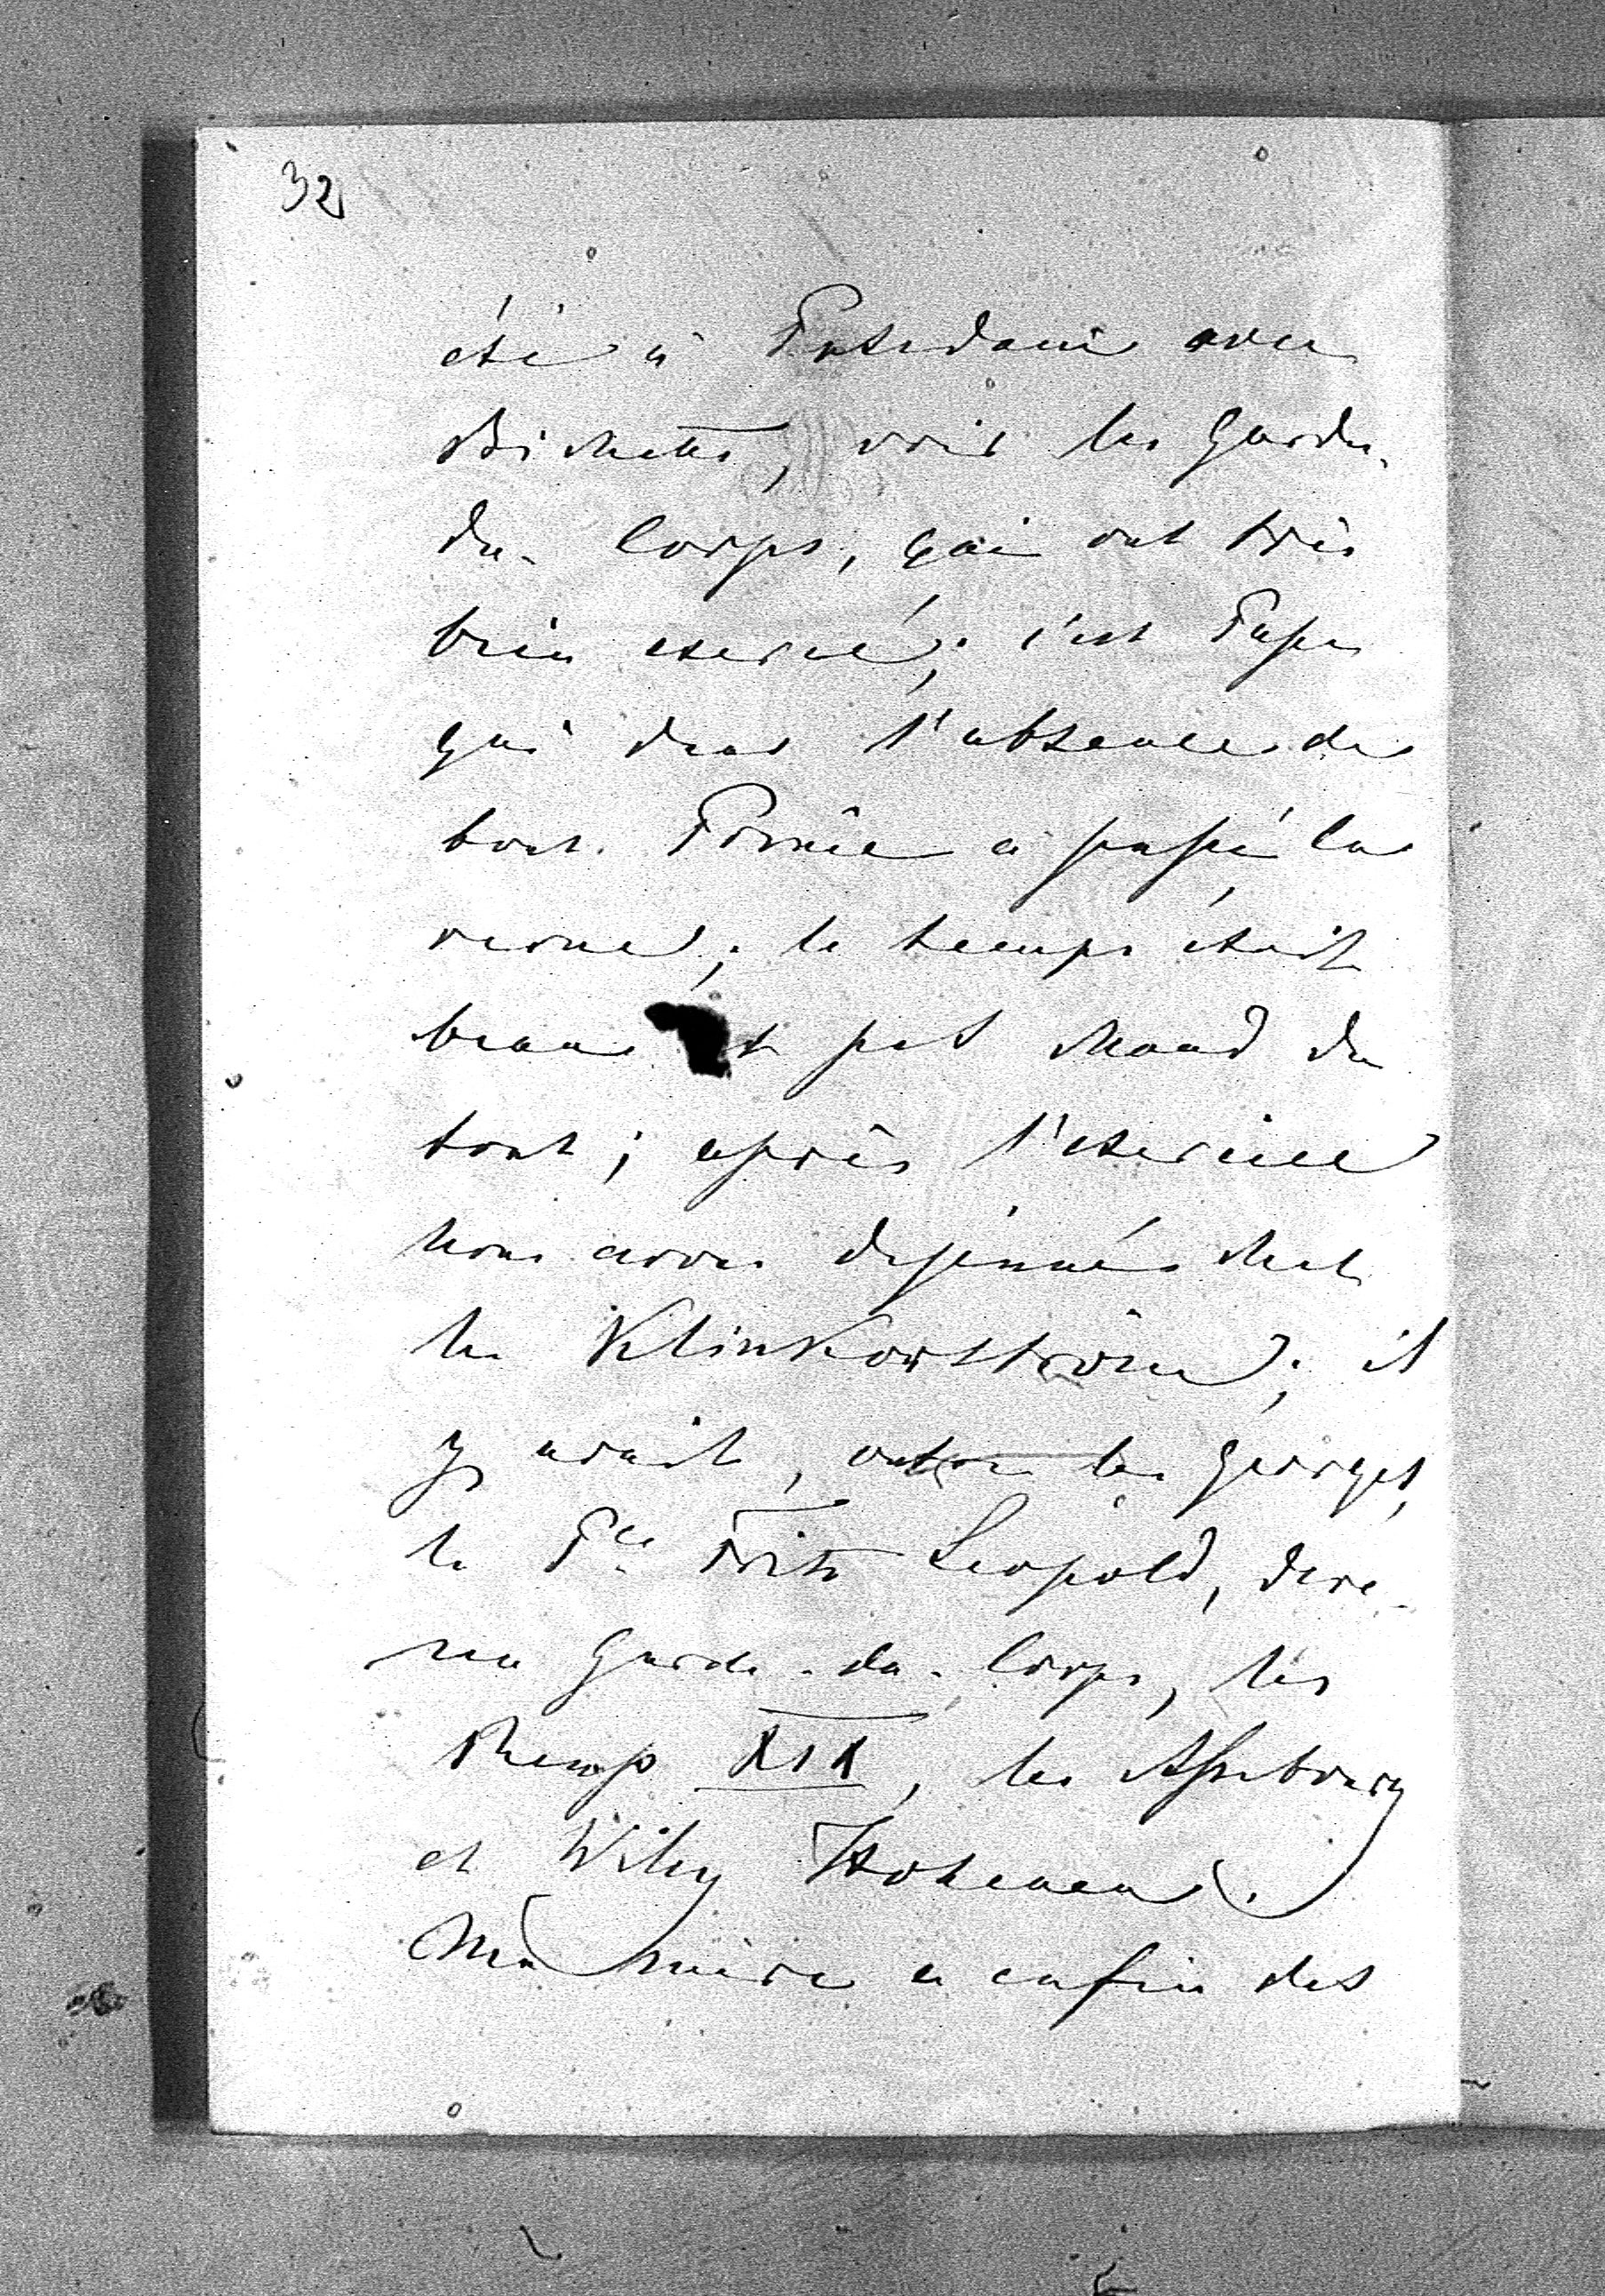 32
été à Potsdam avec
Bichette, voir les Gardes
du- Corps, qui ont très
bien exercé; c'est Papa
qui dans l'absence de
tout Prince a passé la
revue; le temps était
beau et pas chaud du
tout; après l'exercice
nous avons dejeunés chez
les Klinkowström; il
y avait, outre les Georges,
le Pce Fritz Leopold, deve-
nu Garde-du-Corps, les
Reuss XIX, les Asseburg
et Willy Hohenau.
Ma mère a enfin des